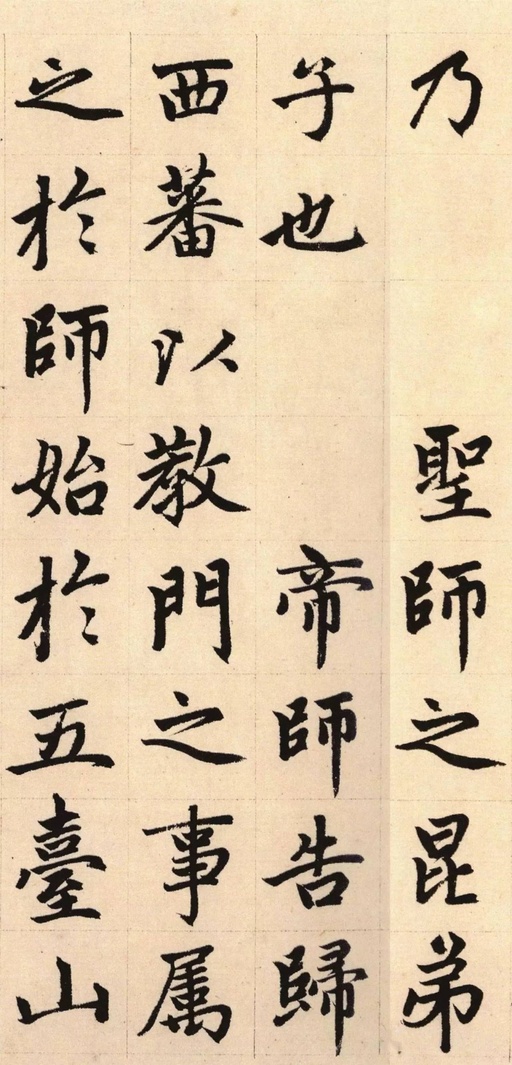 乃聖師之昆弟
子也帝師告歸
西蕃以教門之事属
之於師始於五臺山